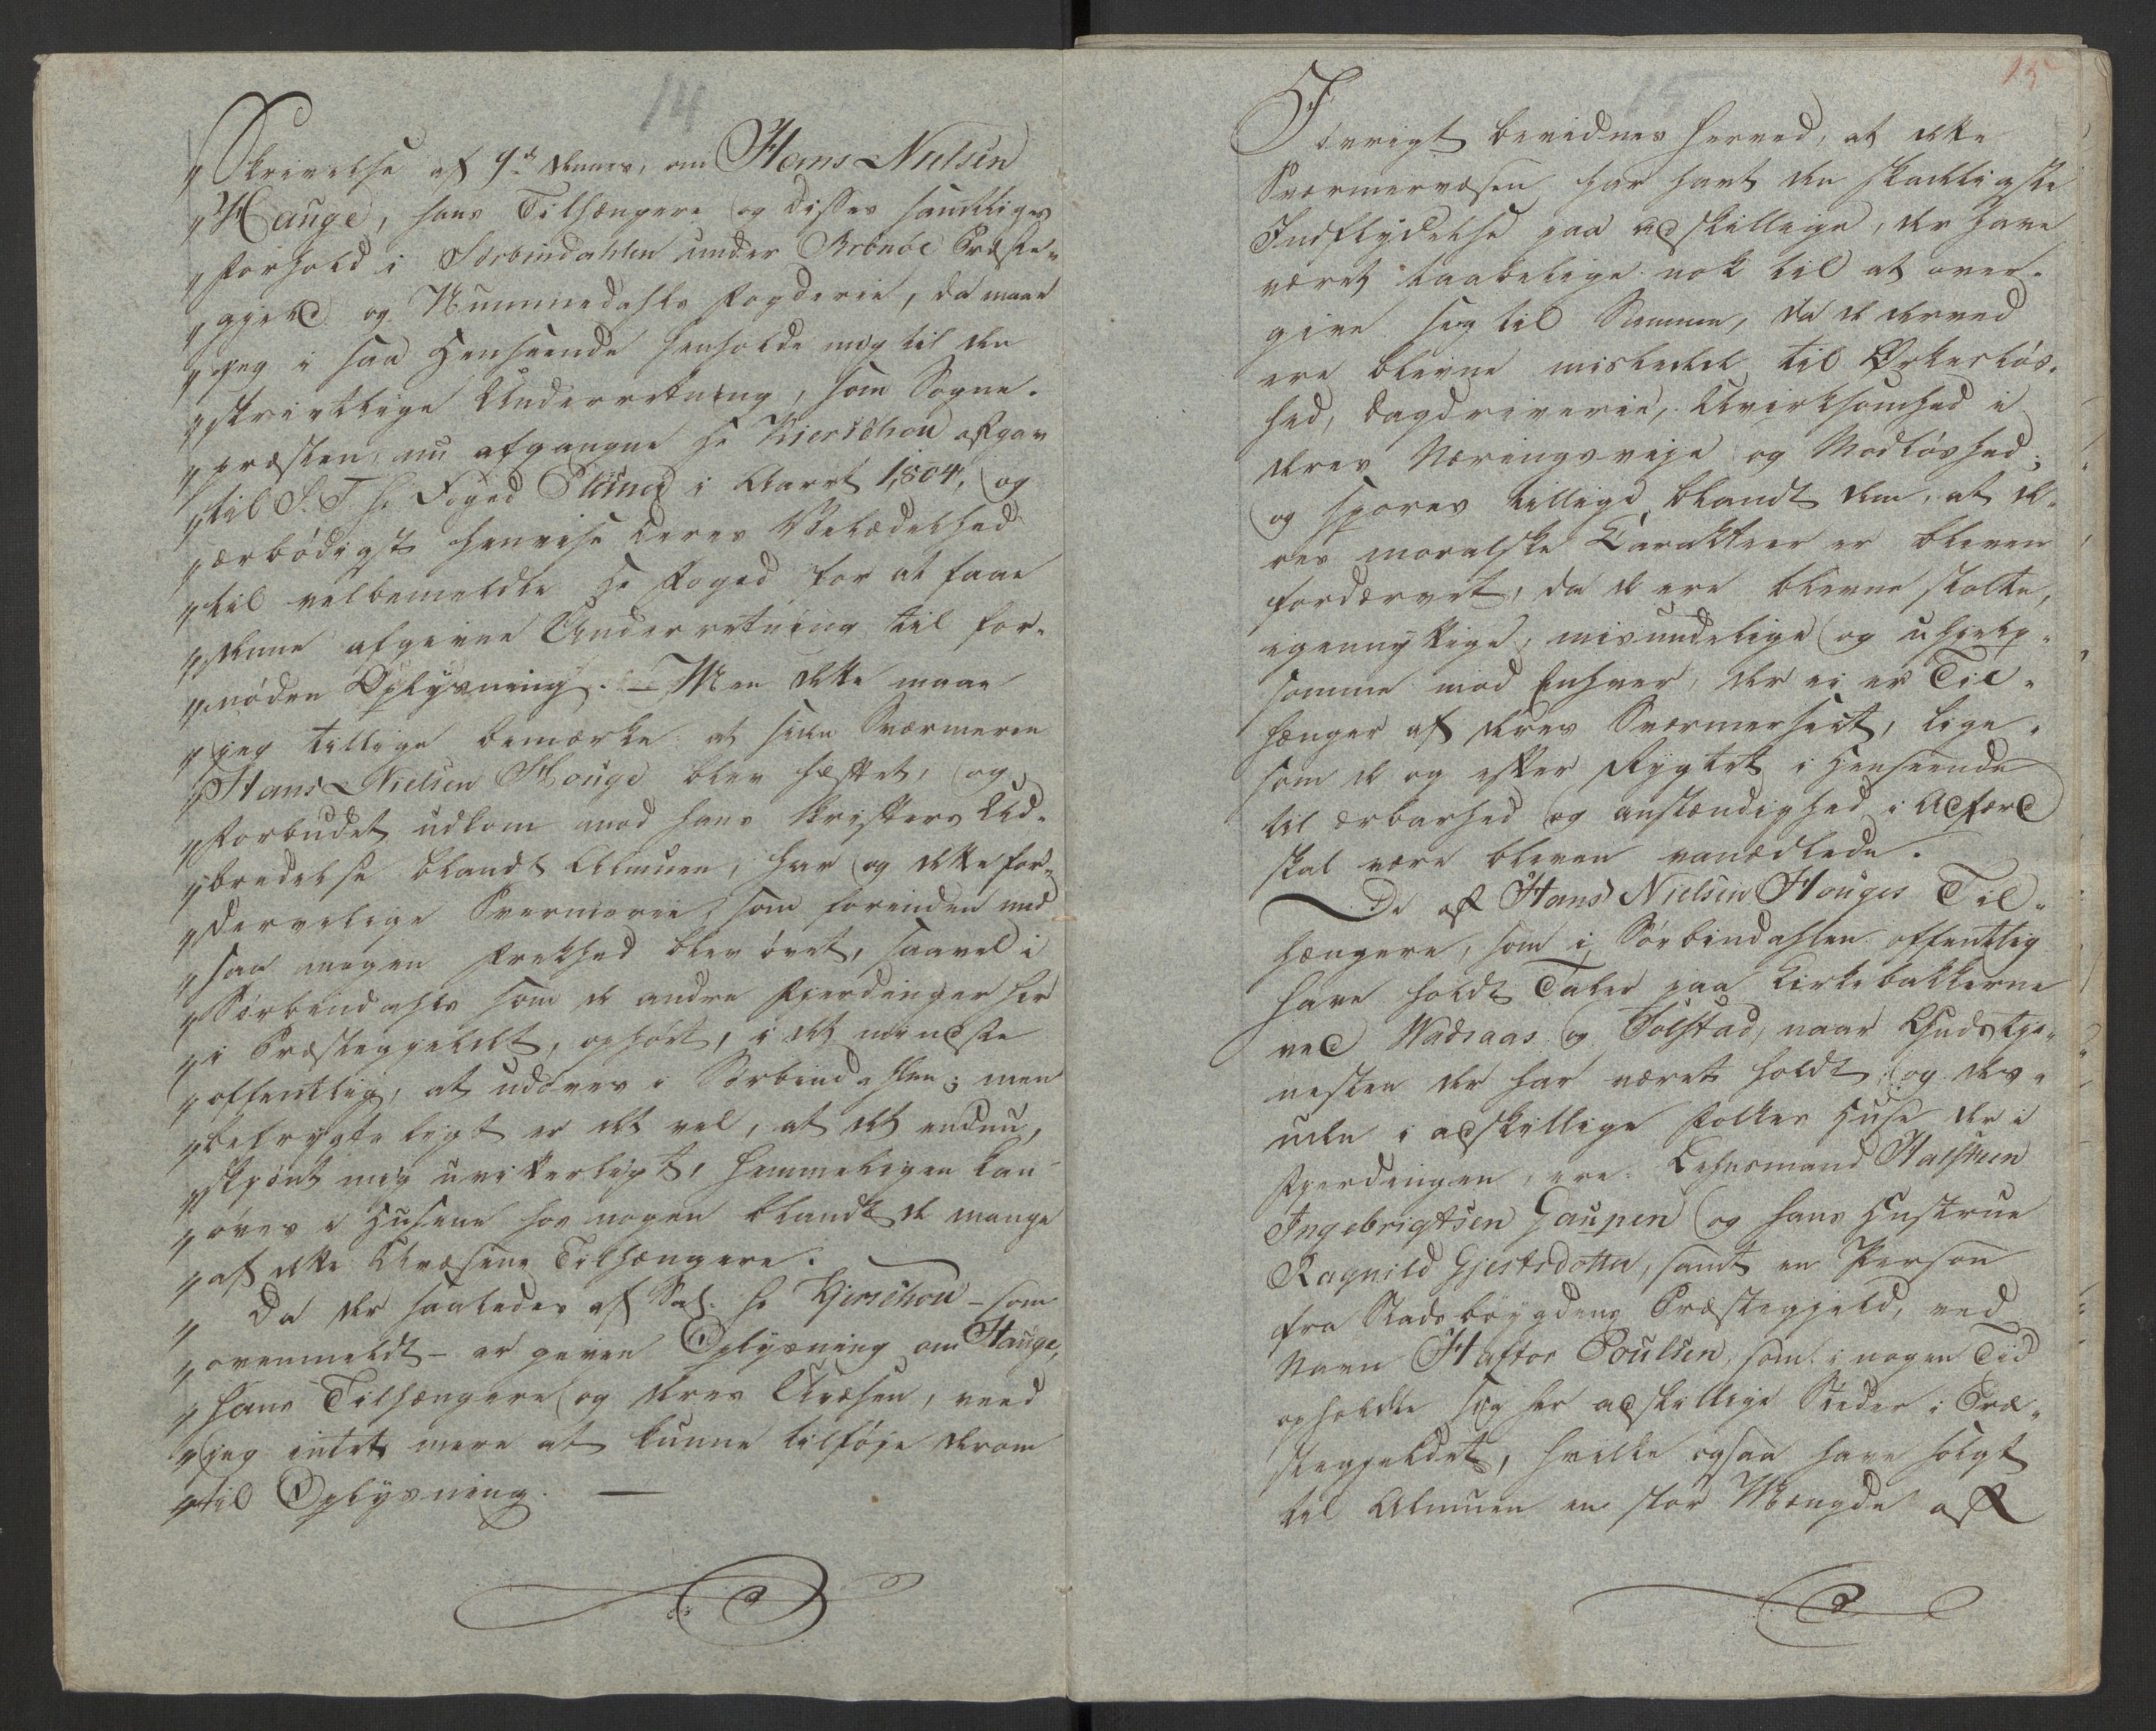 14
„Skrivelse af 9de dennes, om Hans Nielsen
„Hauge, hans Tilhængere og disses samtlige
„Forhold i Sørbindahlen under Brønøe Præste-
„gjeld og Nummedahls Fogderie, da maae
„jeg i saa Henseende henholde mig til den
„skrivtlige Underretning, som Sogne-
„præsten, nu afgangne Hr Kierschou afgav
„til S. T. Hr Foged i Aaret 1804, og
„ærbødigst henvise Deres Velædelhed
„til velbemeldte Hr Foged for at faae
„denne afgivne Underretning til for-
„nøden Oplysning. – Men dette maae
„jeg tillige bemærke at siden Sværmeren
„Hans Nielsen Houge blev hæftet, og
„Forbudet udkom mod hans Skrifters Ud-
„bredelse blandt Almuen, har og dette for-
„dervelige Sværmerie, som forinden med
„saa megen Frekhed blev øvet, saavel i
„Sørbindahls som de andre Fjerdinger her
„i Præstegjeldet, ophørt, i det mindste
„offentlig, at udøves i Sørbindahlen; men
„befrygteligt er det vel, at det endnu,
„skjønt mig uvitterligt, hemmeligen kan
„øves i Husene hos nogen blandt de mange
„af dette Uvæsens Tilhængere.
„Da der saaledes af Sal. Hr Kjerschou – som
„ovenmeldt – er given Oplysning om Hauge,
„hans Tilhængere og deres Uvæsen, veed
„jeg intet mere at kunne tilføje derom
„til Oplysning. —
15
15
Iøvrigt bevidnes herved, at dette
Sværmervæsen har havt den skadeligste
Indflydelse paa adskillige, der have
været taabelige nok til at over-
give sig til Samme, da de derved
ere blevne misledede til Ørkesløs-
hed, Dagdriverie, Uvirksomhed i
deres Næringsveje og Modløshed;
og spores tillige blandt dem, at de-
res moralske Carakteer er bleven
fordærvet, da de ere blevne stolte,
egennyttige, misundelige og uhjelp-
somme mod Enhver, der ei er Til-
hænger af deres Sværmersect, lige-
som de og efter Rygtet i Henseende
til Ærbarhed og Anstændighed i Adfærd
skal være bleven vanædlede.
De af Hans Nielsen Houges Til-
hængere, som i Sørbindahlen offentlig
have holdt Taler paa Kirkebakkerne
ved Wadsaas og Solstad, naar Gudstje-
nesten der har været holdt, og des-
uden i adskillige Folkes Huse der i
Fjerdingen, ere: Lehnsmand Halsteen
Ingebrigtsen Gaupen og hans Hustrue
Ragnild Gjertsdotter, samt en Person
fra Stadsbøygdens Præstegjeld, ved
Navn Haftor Poulsen, som i nogen Tid
opholdte sig her adskillige Steder i Præ-
stegjeldet, hvilke ogsaa have solgt
til Almuen en stor Mængde af